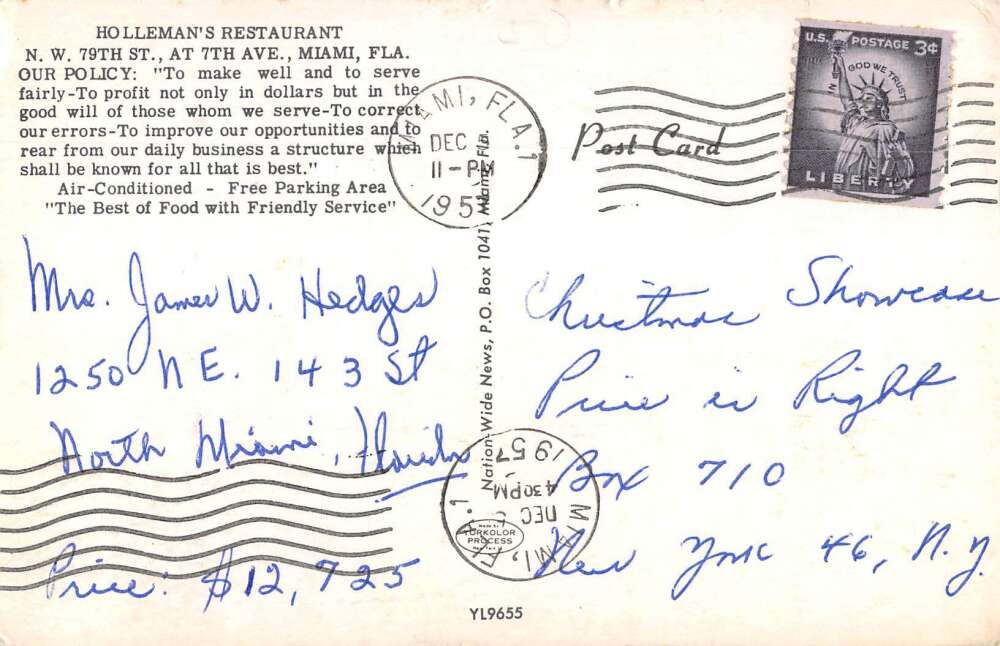 HOLLEMAN'S RESTAURANT
N. W. 79TH ST., AT 7TH AVE., MIAMI, FLA.
OUR POLICY: "To make well and to serve
fairly-To profit not only in dollars but in the
good will of those whom we serve-To correct
our errors-To improve our opportunities and to
rear from our daily business a structure which
shall be known for all that is best."
Air-Conditioned - Free Parking Area
"The Best of Food with Friendly Service"
MIAMI, FLA. 1
DEC
11-PM
195
Post Card
U.S. POSTAGE 3¢
IN GOD WE TRUST
LIBERTY
Mrs. James W. Hedges
1250 N E. 143 St
North Miami, Florida
Price: $12,725
Nation-Wide News, P.O. Box 1041, Miami, Fla.
Christmas Showcase
Price is Right
Box 710
New York 46, N.Y.
MIAMI, FLA. 1
DEC
430PM
1957
MADE BY
YORKOLOR
PROCESS
YL9655